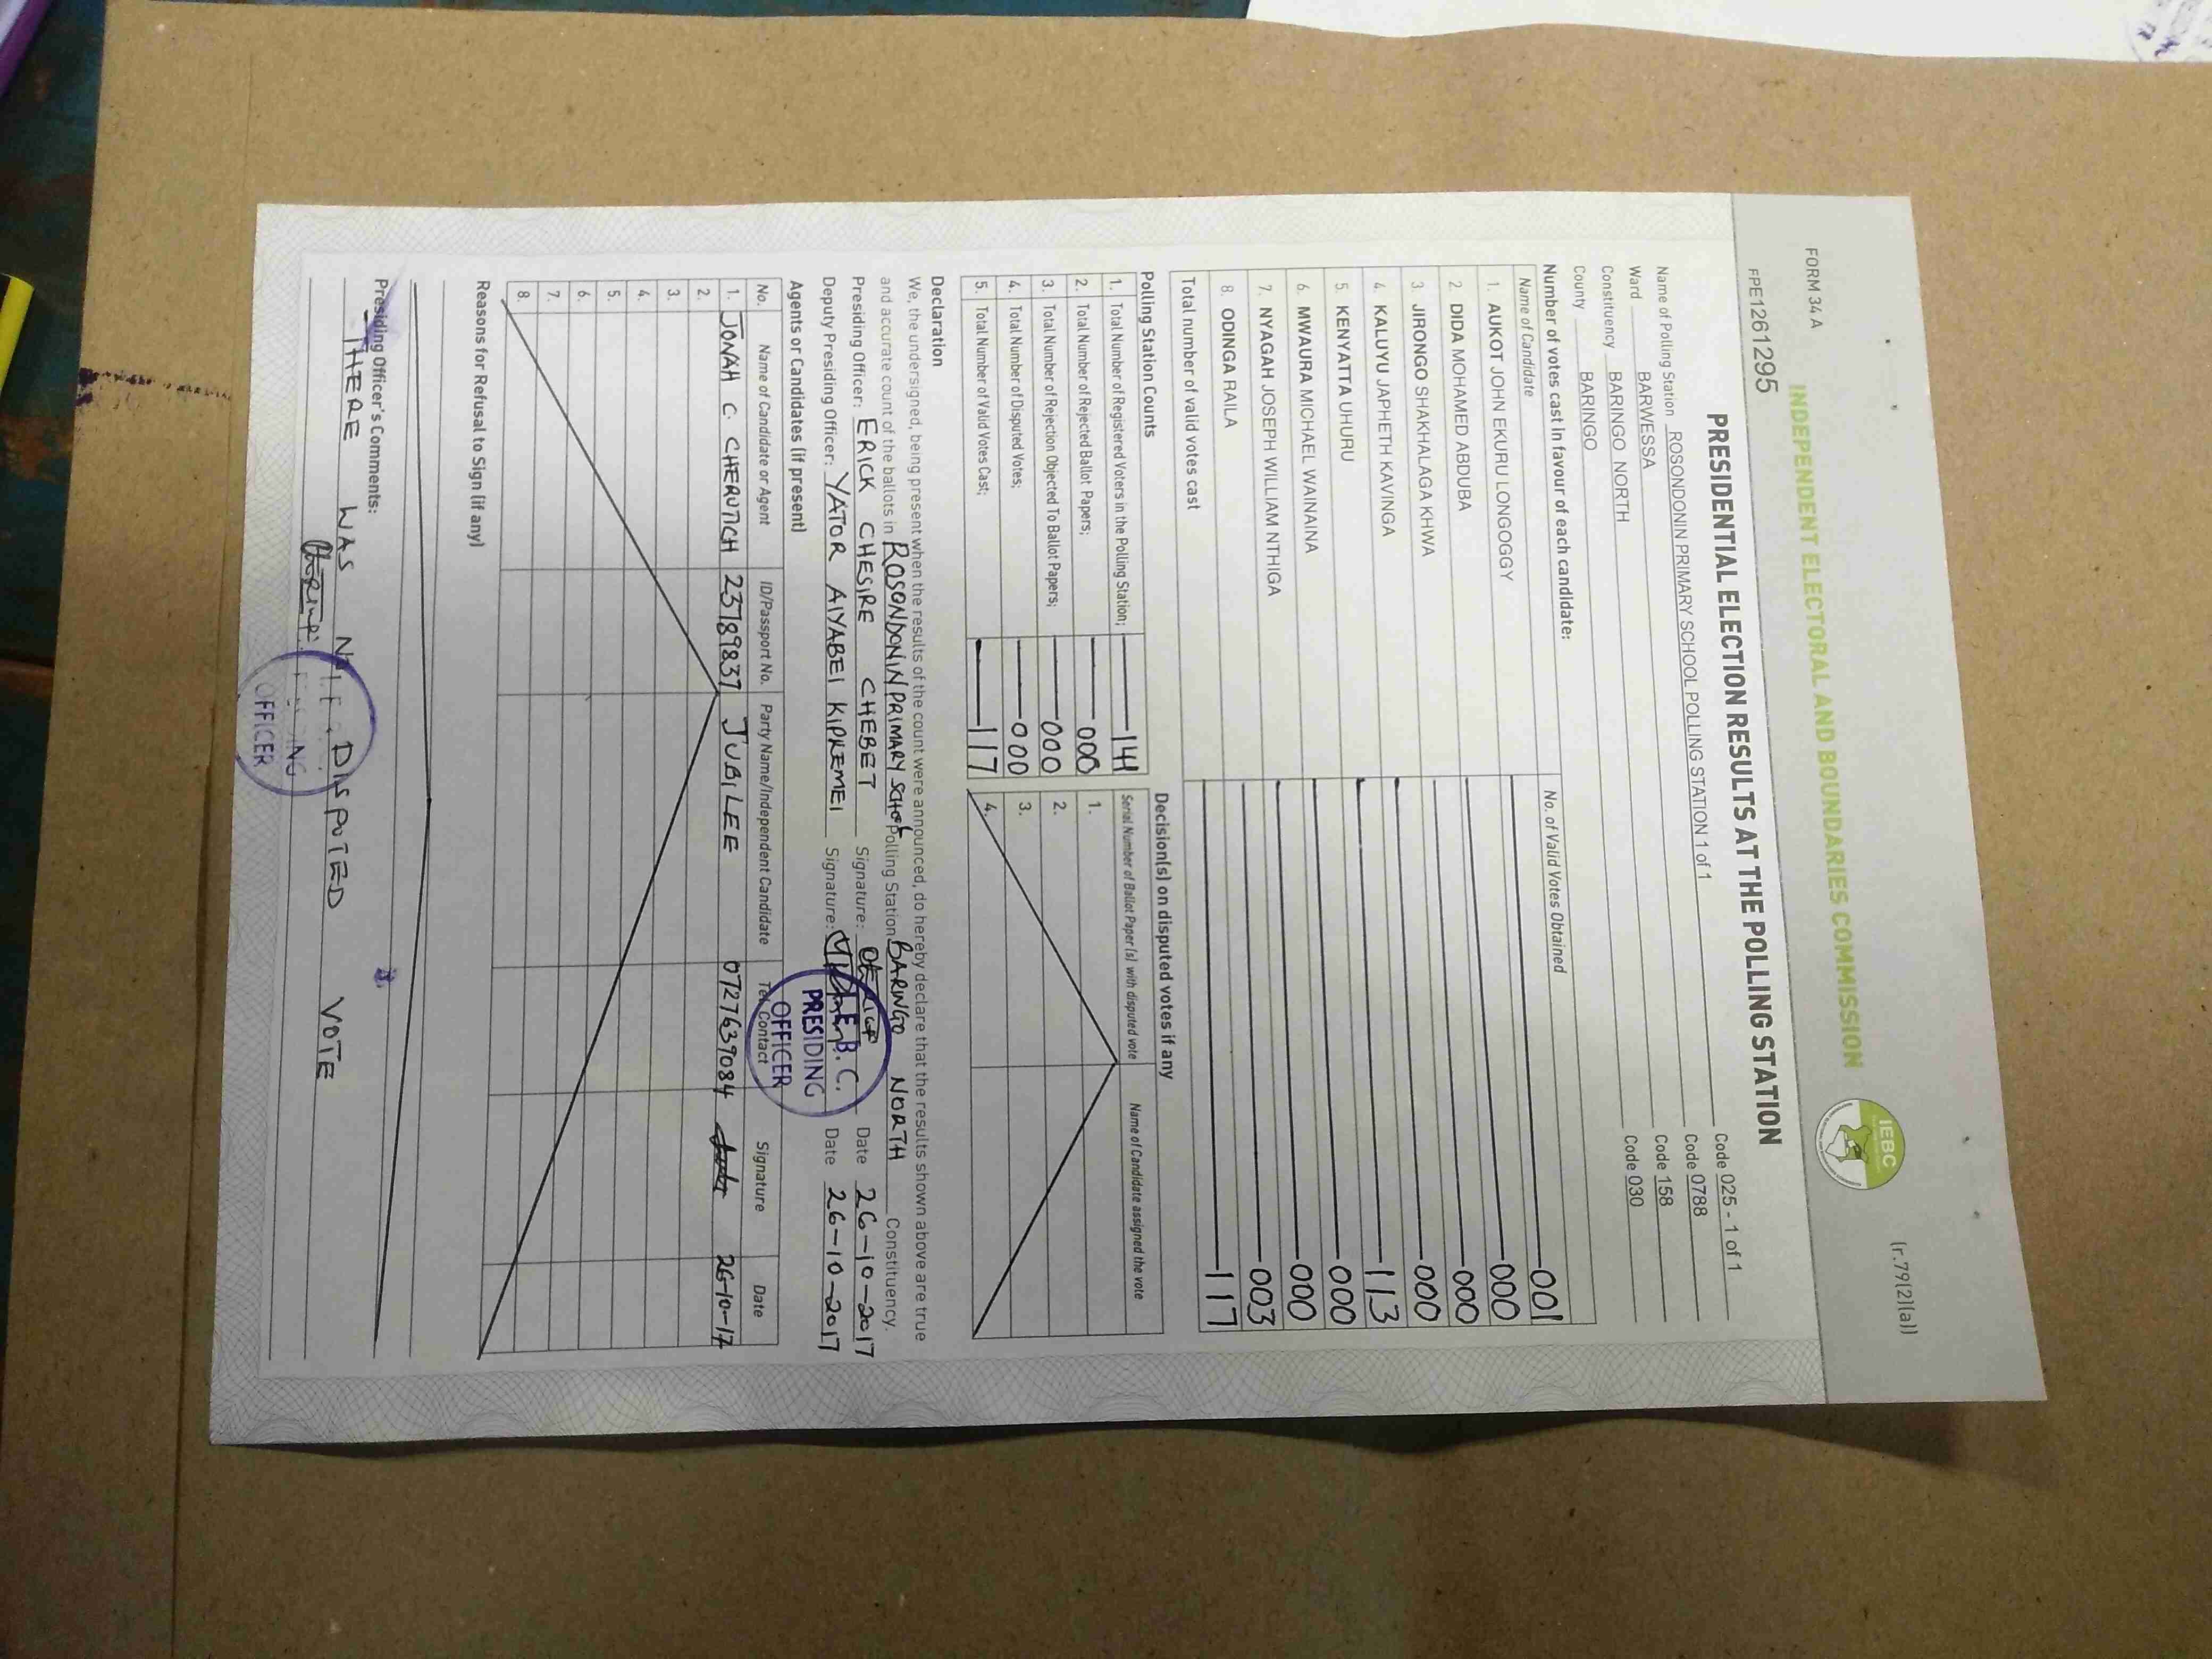 FORM 34 A
(r.79(2)(a))
INDEPENDENT ELECTORAL AND BOUNDARIES COMMISSION
IEBC
FPE1261295
PRESIDENTIAL ELECTION RESULTS AT THE POLLING STATION
Name of Polling Station ROSONDONIN PRIMARY SCHOOL POLLING STATION 1 of 1 Code 025 - 1 of 1
Ward BARWESSA Code 0788
Constituency BARINGO NORTH Code 158
County BARINGO Code 030
Number of votes cast in favour of each candidate:
Name of Candidate No. of Valid Votes Obtained
1. AUKOT JOHN EKURU LONGOGGY 001
2. DIDA MOHAMED ABDUBA 000
3 JIRONGO SHAKHALAGA KHWA 000
4. KALUYU JAPHETH KAVINGA 000
5. KENYATTA UHURU 113
6. MWAURA MICHAEL WAINAINA 000
7. NYAGAH JOSEPH WILLIAM NTHIGA 000
8. ODINGA RAILA 003
Total number of valid votes cast 117
Polling Station Counts
1. Total Number of Registered Voters in the Polling Station; 141
2. Total Number of Rejected Ballot Papers; 000
3. Total Number of Rejection Objected To Ballot Papers; 000
4. Total Number of Disputed Votes; 000
5. Total Number of Valid Votes Cast; 117
Decision(s) on disputed votes if any
Serial Number of Ballot Paper (s) with disputed vote Name of Candidate assigned the vote
1.
2.
3.
4.
Declaration
We, the undersigned, being present when the results of the count were announced, do hereby declare that the results shown above are true
and accurate count of the ballots in ROSONDONIN PRIMARY SCHOOL Polling Station BARINGO NORTH Constituency.
Presiding Officer: ERICK CHESIRE CHEBET Signature: Date 26-10-2017
Deputy Presiding Officer: YATOR AIYABEI KIPKEMEI Signature: Date 26-10-2017
I.E.B.C.
PRESIDING
OFFICER
Agents or Candidates (if present)
No. Name of Candidate or Agent ID/Passport No. Party Name/Independent Candidate Tel. Contact Signature Date
1. JONAH C. CHERUTICH 23789837 JUBILEE 0727639084 26-10-17
2.
3.
4.
5.
6.
7.
8.
Reasons for Refusal to Sign (if any)
Presiding Officer's Comments:
THERE WAS DISPUTED VOTE
OFFICER